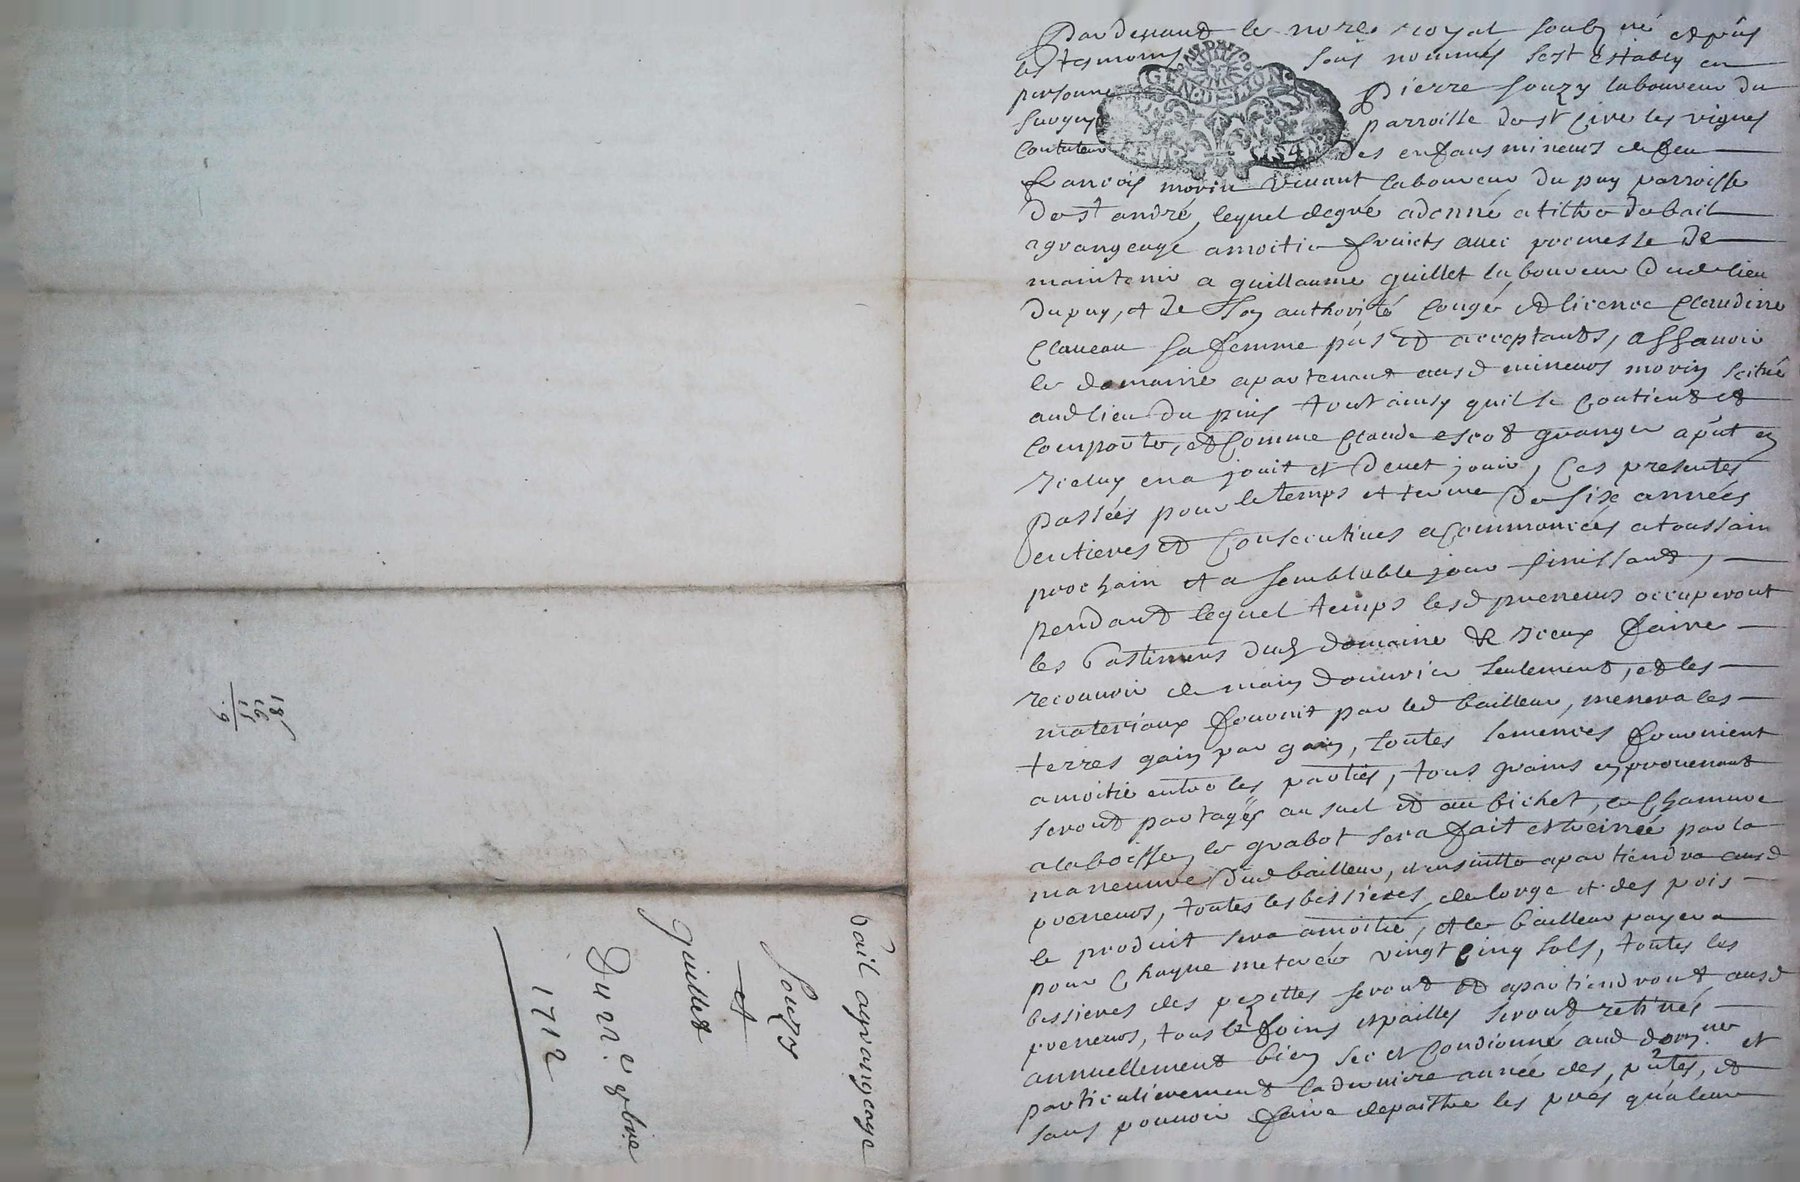 Pardevant le no.re royal soubz né et pñs
les tesmoins sous nommés sest estably en
personne Pierre Souzy laboureur du
parroisse de st Cire les vignes
Coututeur des enfans mineurs de feu
francois morin vivant laboureur du puy parroisse
de st andré, lequel de gré a donné a tiltre de bail
agrangeage a moitie fruicts avec promesse de
maintenir a guillaume guillet laboureur dud lieu
du puy, et de son authorité congé et licence Claudine
Claueau sa femme pñs et acceptants, assavoir
le domaine apartenant ausd mineurs morin scitué
aud lieu du puis tout ainsy quil se Contient et
Comporte, et Comme Claude escot granger aput en
Iceluy en a jouit et devet jouir, Ces presentes
passées pour le temps et terme de six années
entieres et Consecutives a Commancées a toussain
prochain et a semblable jour finissant,
pendant lequel temps lesd preneurs occuperont
les bastimens dud domaine & Iceux faire
recouvrir de main douvrier seulement, et les
materiaux fournit par led bailleur, menera les
terres gain par gain, toutes semences fournient
amoitie entre les parties, tous grains en provenant
seront partagés au sac et au bichet, le Chamvre
a la boisse, le grabot sera fait et par la
maneuvre dud bailleur, et ensuitte apartiendra ausd
preneurs, toutes les bessieres de lorge et des pois
le produit sera amoitié, et le bailleur payera
pour Chaque meterée vingt Cinq sols, toutes les
bessieres des pezettes seront et apartiendront ausd
preneurs, tous les foins et pailles seront retirés
annuellement bien sec et Condionné aud dom.ne et
particulierement la derniere année des pñtes, et
sans pouvoir faire depaitre les prés qua leur
bail agrangeage
Souzy
et
guillet
Du II.e 8bre
1712
18
16
15
.9